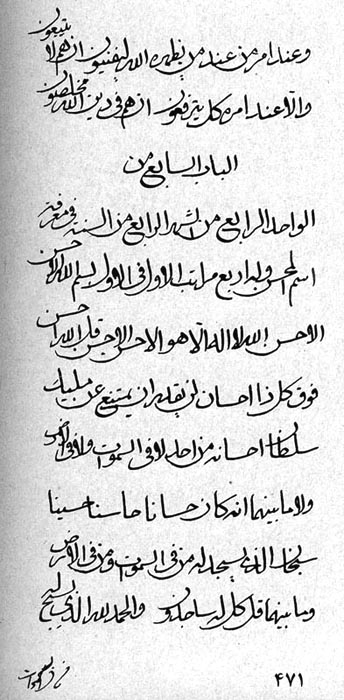 وعند امر من عند من يظهره الله ليفتنون ان هم لا يتبعون
والا عند امره كل يترفعون ان هم في دين الله مخلصون
الباب السابع من
الواحد الرابع من الشهر الرابع من السنة في معرفة
اسم المحسن وله اربع مراتب الاول في الاول بسم الله الاحسن
الاحسن الله لا اله الا هو الاحسن الاحسن قل الله احسن
فوق كل ذا احسان لن يقدر ان يمتنع عن مليك
سلطان احسانه من احد لا في السموات ولا في الارض
ولا ما بينهما انه كان حسانا حاسنا حسينا
سبحان الذي يسجد له من في السموات ومن في الارض
وما بينهما قل كل له ساجدون والحمد لله الذي يسبح له
من في السموات
۴۷۱